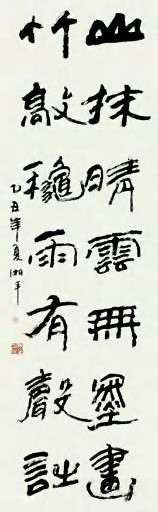 山抹晴雲無墨畫
竹敲龝雨有聲詩
乙丑年夏湘平